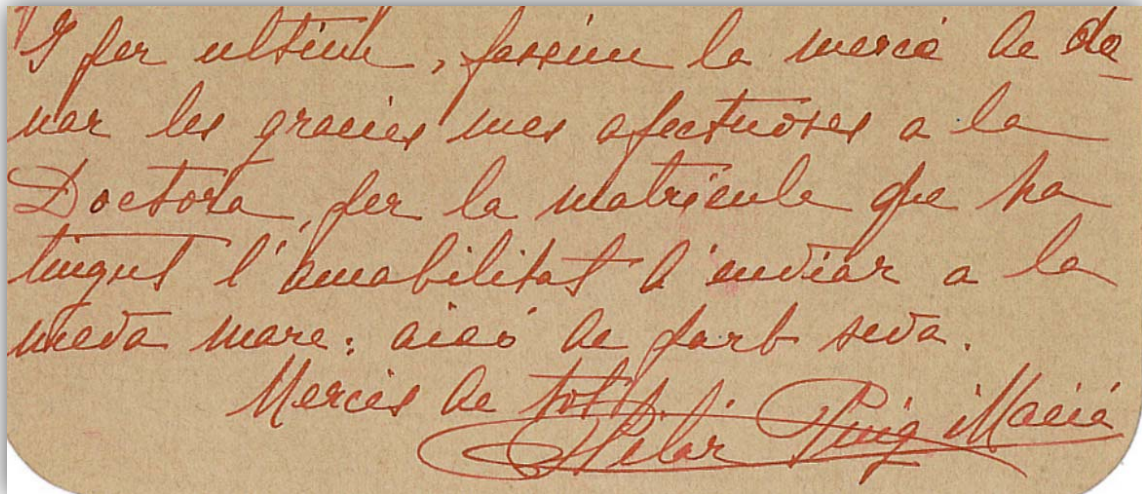 I per ultim, fassim la mercé de do-
nar les gracies mes afectuoses a la
Doctora, per la matrícula que ha
tingut l'amabilitat d'enviar a la
meva mare: aixó de part seva.
Mercés de tot!
Pilar Puig i Macià